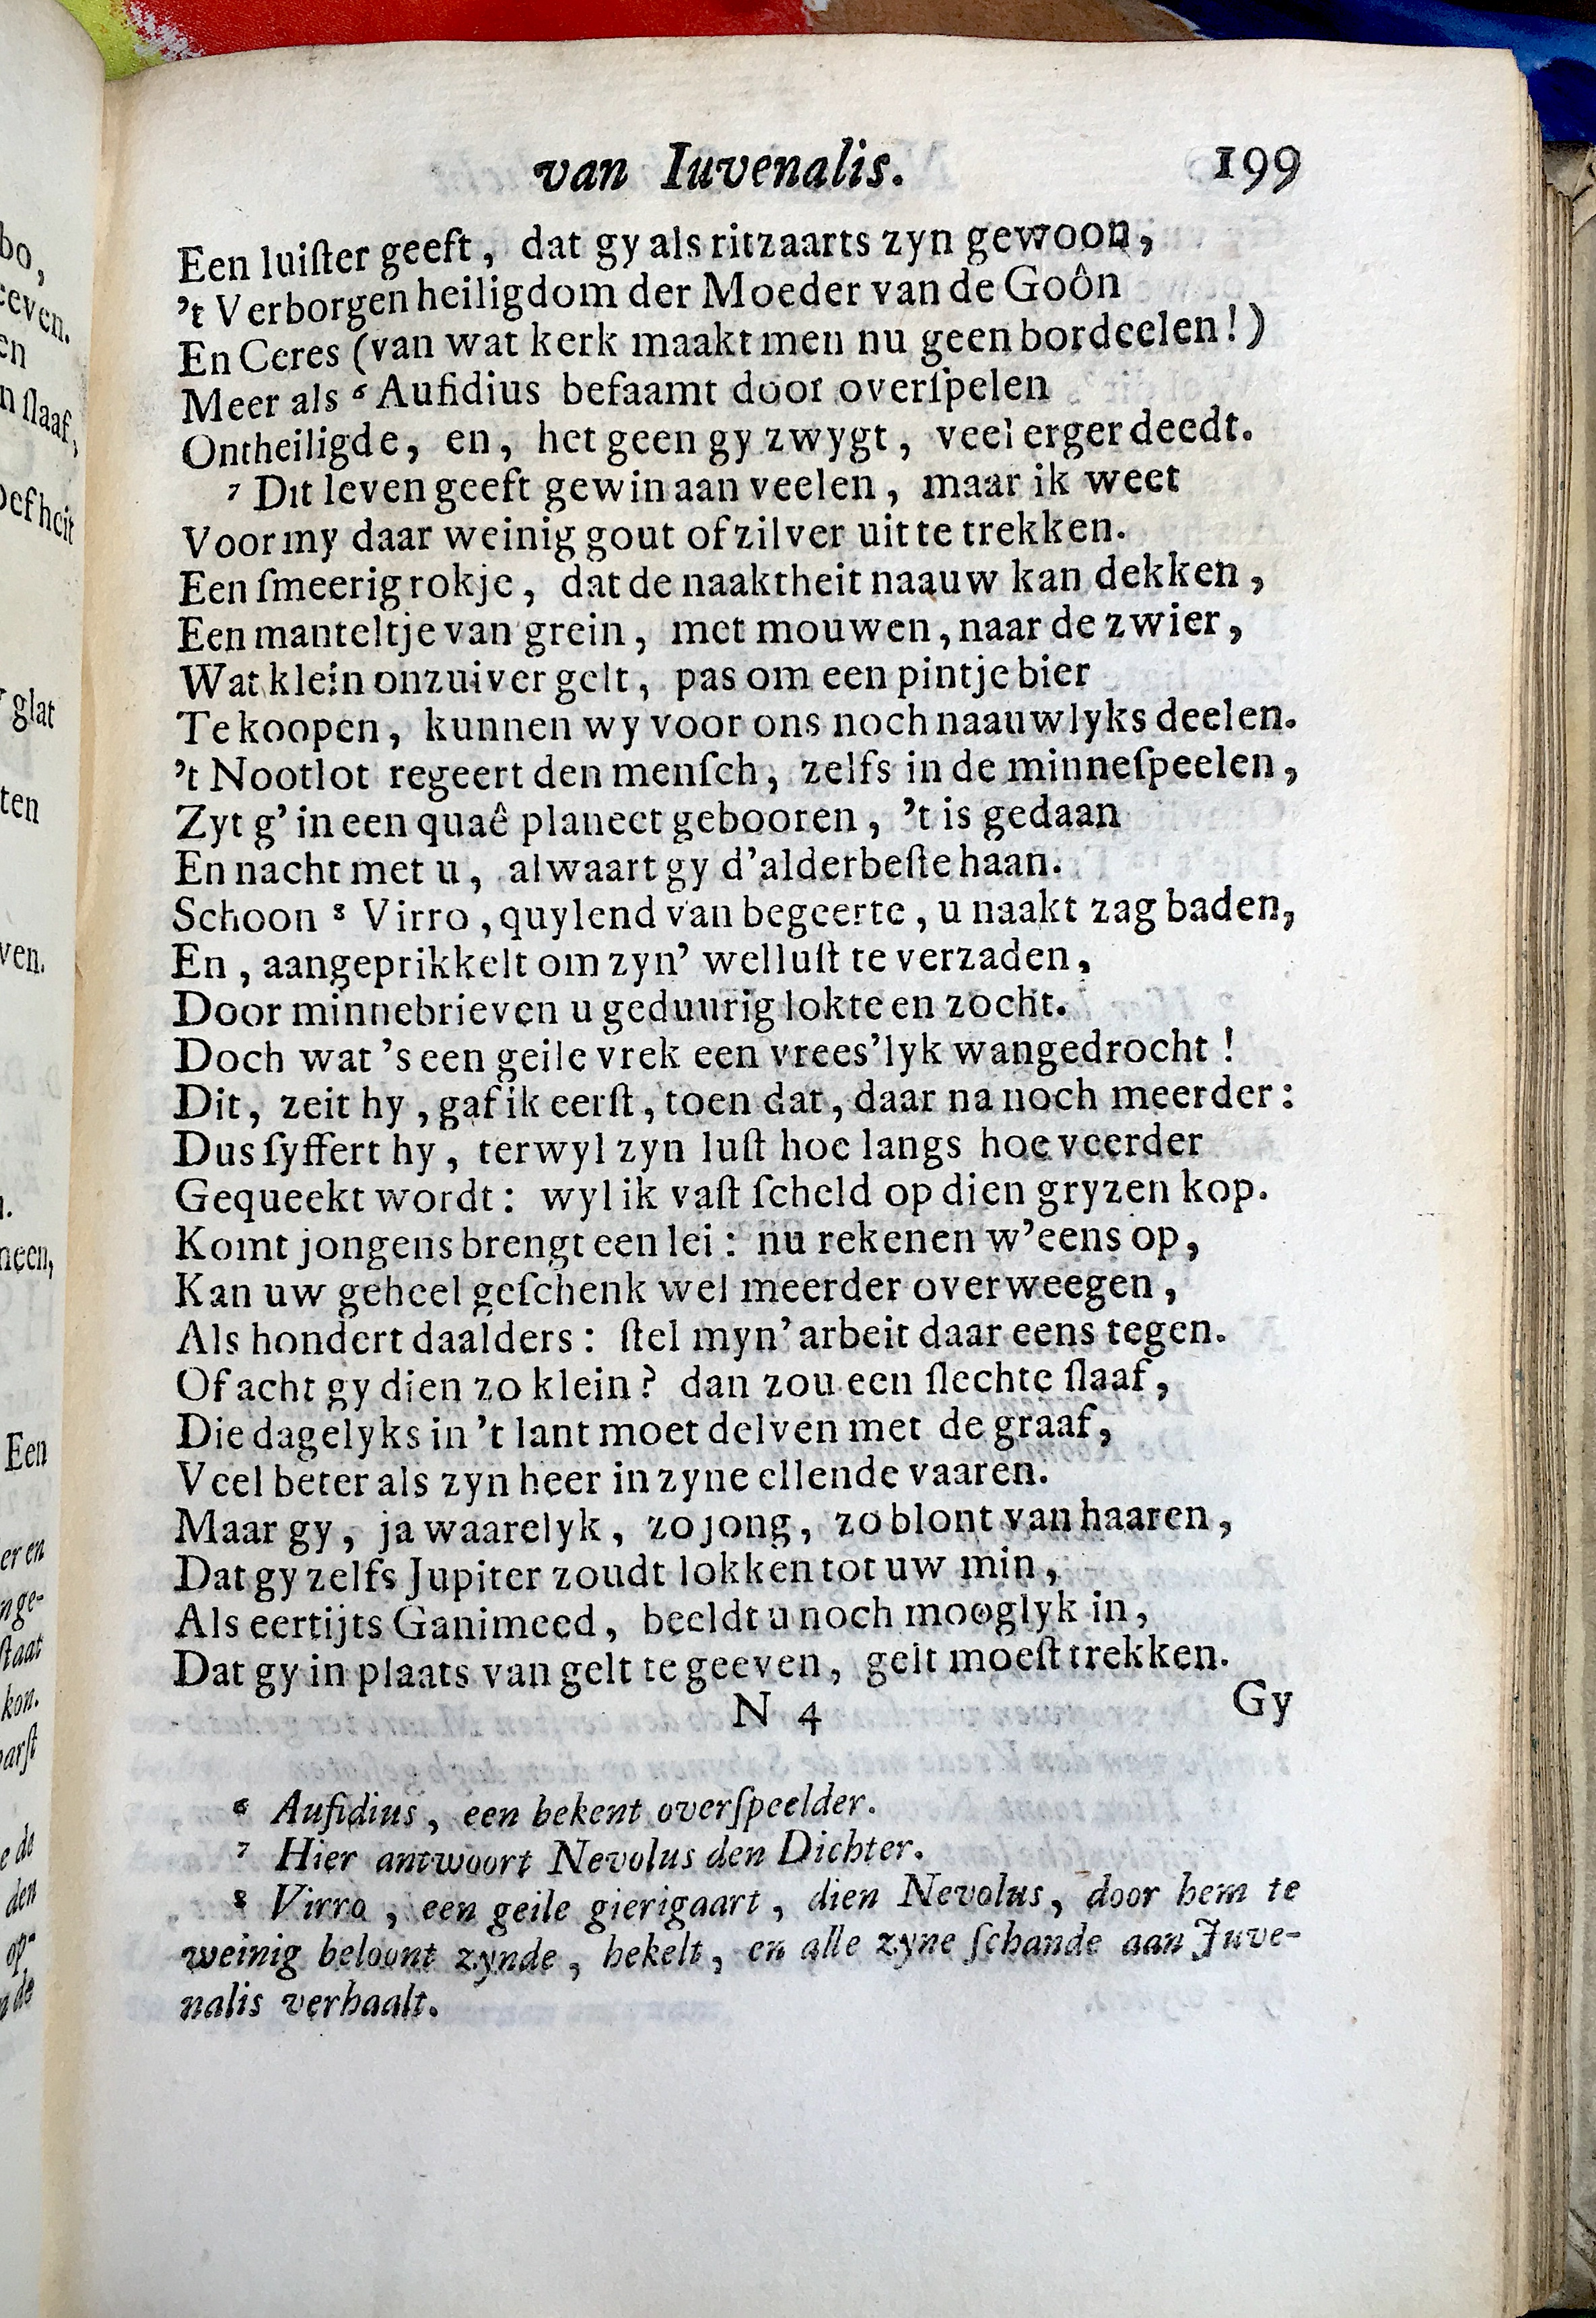 van Iuvenalis. 199
Een luiſter geeft, dat gy als ritzaarts zyn gewoon,
't Verborgen heiligdom der Moeder van de Goôn
En Ceres (van wat kerk maakt men nu geen bordeelen!)
Meer als ⁶ Aufidius befaamt door overſpelen
Ontheiligde, en, het geen gy zwygt, veel erger deedt.
⁷ Dit leven geeft gewin aan veelen, maar ik weet
Voor my daar weinig gout of zilver uit te trekken.
Een ſmeerig rokje, dat de naaktheit naauw kan dekken,
Een manteltje van grein, met mouwen, naar de zwier,
Wat klein onzuiver gelt, pas om een pintje bier
Te koopen, kunnen wy voor ons noch naauwlyks deelen.
't Nootlot regeert den menſch, zelfs in de minneſpeelen,
Zyt g' in een quaê planeet gebooren, 't is gedaan
En nacht met u, al waart gy d'alderbeſte haan.
Schoon ⁸ Virro, quylend van begeerte, u naakt zag baden,
En, aangeprikkelt om zyn' welluſt te verzaden,
Door minnebrieven u geduurig lokte en zocht.
Doch wat 's een geile vrek een vrees'lyk wangedrocht!
Dit, zeit hy, gaf ik eerſt, toen dat, daar na noch meerder:
Dus ſyffert hy, terwyl zyn luſt hoe langs hoe veerder
Gequeekt wordt: wyl ik vaſt ſcheld op dien gryzen kop.
Komt jongens brengt een lei: nu rekenen w'eens op,
Kan uw geheel geſchenk wel meerder overweegen,
Als hondert daalders: ſtel myn' arbeit daar eens tegen.
Of acht gy dien zo klein? dan zou een ſlechte ſlaaf,
Die dagelyks in 't lant moet delven met de graaf,
Veel beter als zyn heer in zyne ellende vaaren.
Maar gy, ja waarelyk, zo jong, zo blont van haaren,
Dat gy zelfs Jupiter zoudt lokken tot uw min,
Als eertijts Ganimeed, beeldt u noch mooglyk in,
Dat gy in plaats van gelt te geeven, gelt moeſt trekken.
N 4 Gy
⁶ Aufidius, een bekent overſpeelder.
⁷ Hier antwoort Nevolus den Dichter.
⁸ Virro, een geile gierigaart, dien Nevolus, door hem te
weinig beloont zynde, hekelt, en alle zyne ſchande aan Juve-
nalis verhaalt.